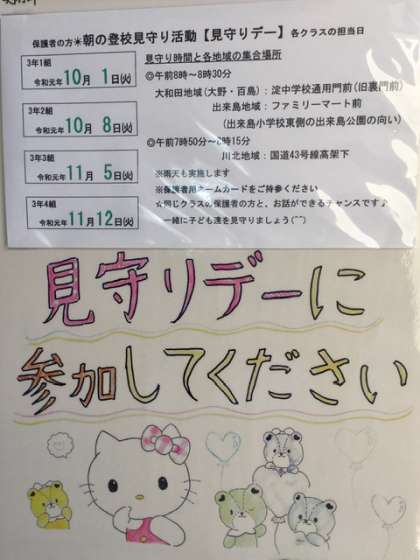 保護者の方☀朝の登校見守り活動【見守りデー】各クラスの担当日
3年1組
令和元年10月 1日(火)
3年2組
令和元年10月 8日(火)
3年3組
令和元年11月 5日(火)
3年4組
令和元年11月12日(火)
見守り時間と各地域の集合場所
◎午前8時~8時30分
大和田地域(大野・百島):淀中学校通用門前(旧裏門前)
出来島地域:ファミリーマート前
(出来島小学校東側の出来島公園の向い)
◎午前7時50分~8時15分
川北地域:国道43号線高架下
※雨天も実施します
※保護者用ネームカードをご持参ください
☆同じクラスの保護者の方と、お話ができるチャンスです♪
一緒に子ども達を見守りましょう(^^)
見守りデーに
参加してください